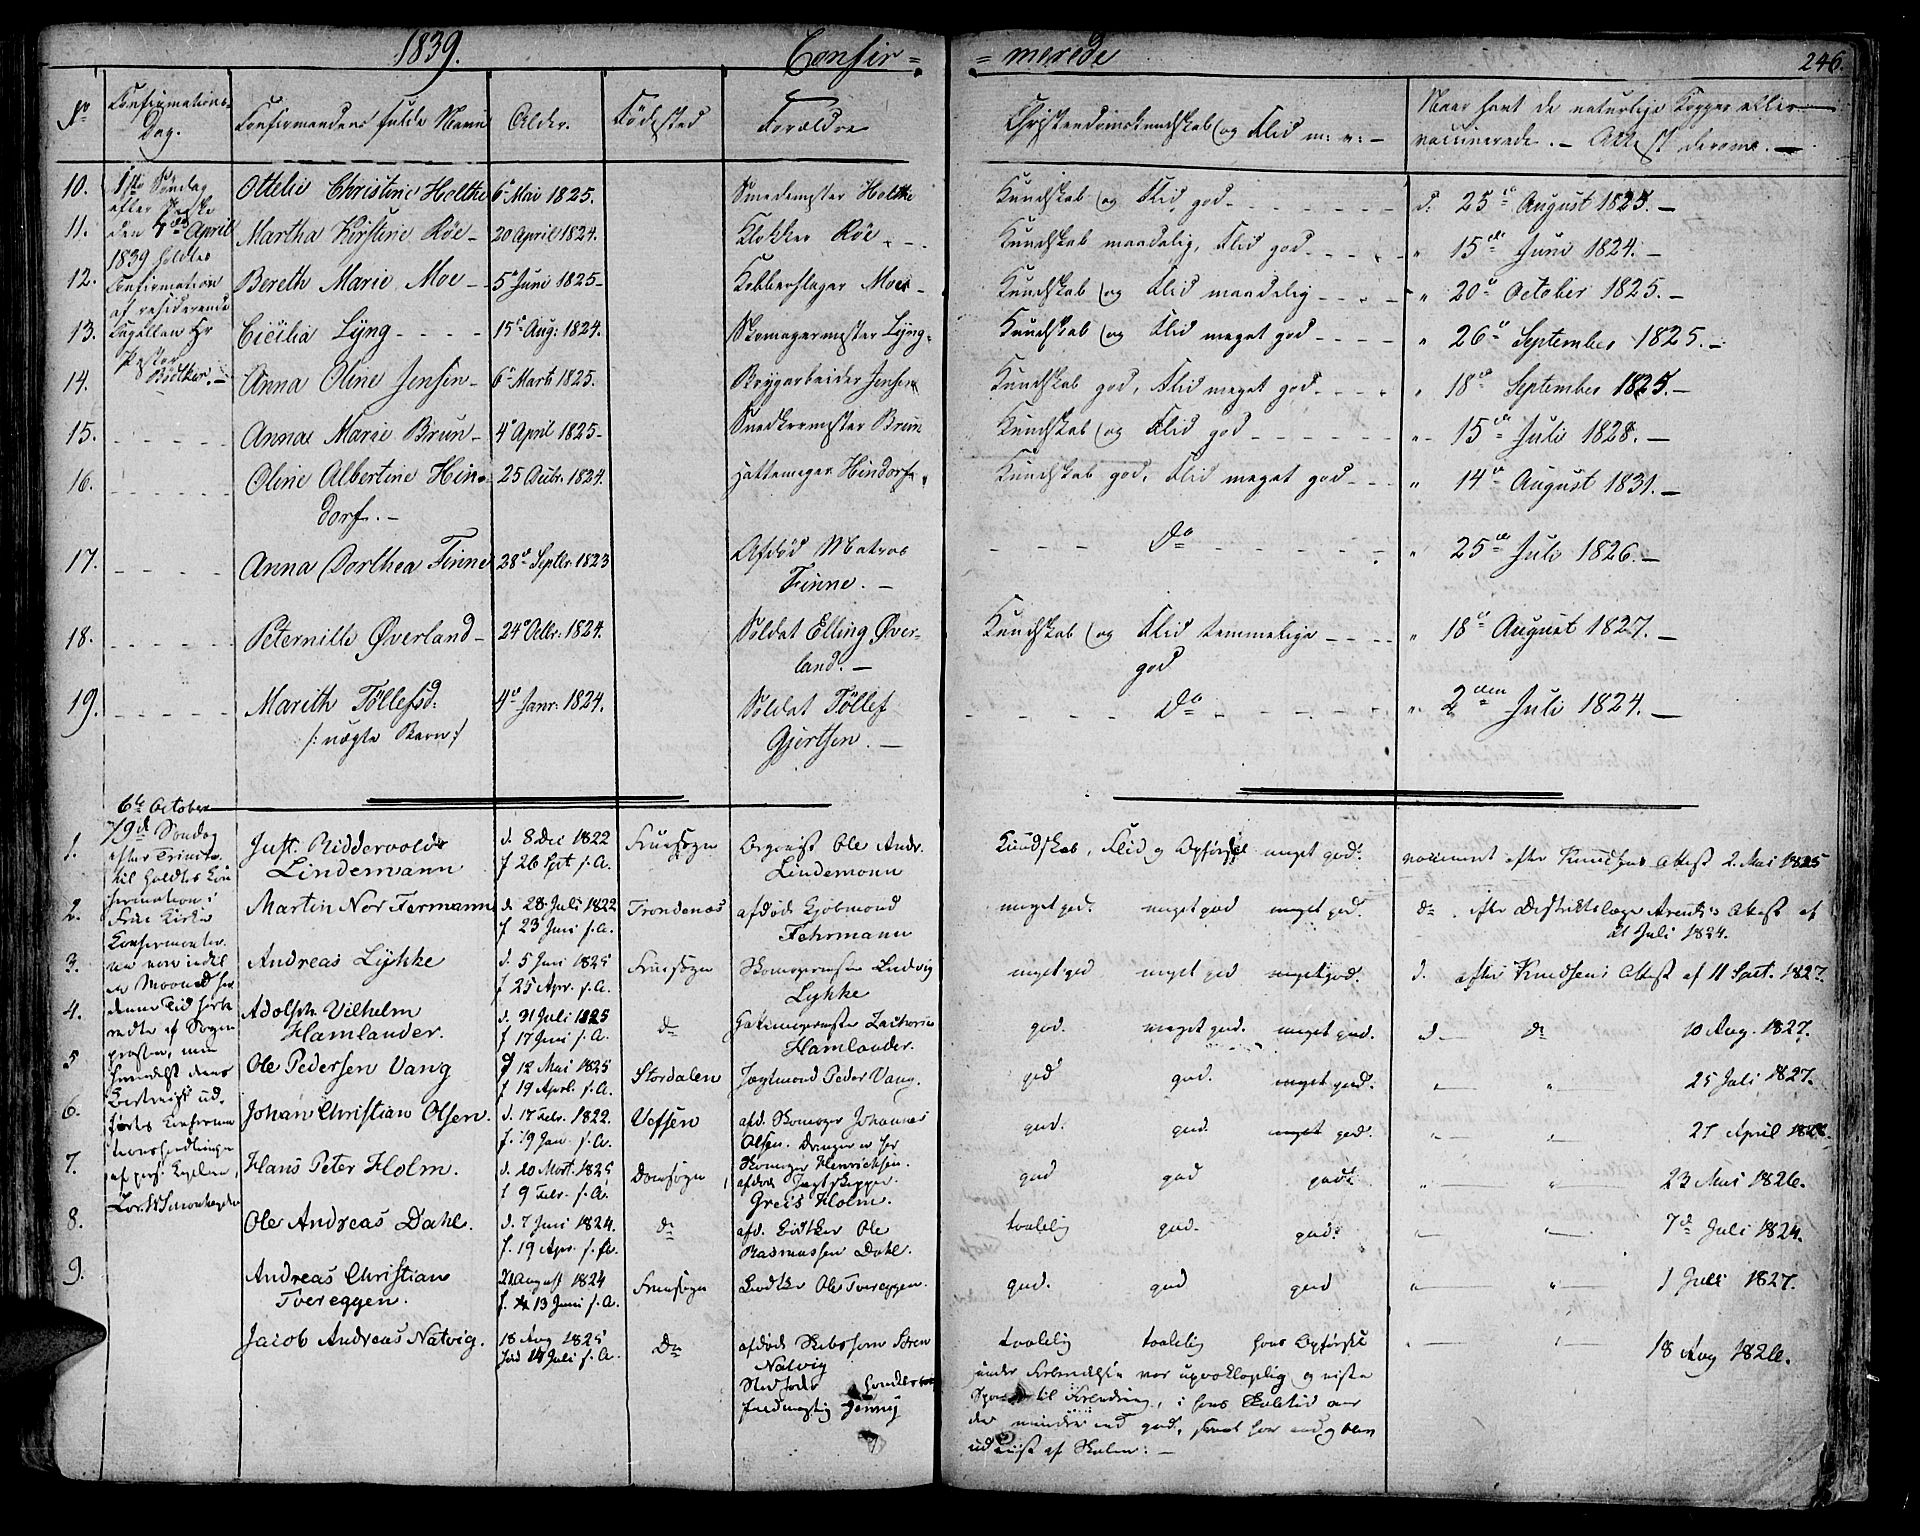 1839. Confir= =merede 246.
No Confirmations Dag. Confirmandens fulde Navn Alder. Fødested Forældre Christendomskundskab og Flid m: v: — Naar havt de naturlige Kopper eller vaccinerede. — Attest derom. —
1ste Søndag efter Paaske den 7de April 1839 holdtes Confirmation af residerende Capellan Hr Pastor Bødtker. —
10. Ottelie Christine Holthe 6 Mai 1825. Smedemester Holthe Kundskab og Flid god d. 25de August 1825. —
11. Martha Kirstine Röe 20 April 1824. Klokker Röe Kundskab maadelig, Flid god " 15de Juni 1824. —
12. Bereth Marie Moe 5 Juni 1825 Kobberslager Moe Kundskab og Flid maadelig " 20de October 1825. —
13. Cicilia Lyng 15 Aug: 1824. Skomagermester Lyng Kundskab og Flid meget god " 26de September 1825. —
14. Anna Oline Jensen 6 Marts 1825. Brygarbeider Jensen Kundskab god, Flid meget god " 18de September 1825. —
15. Anna Marie Brun 4 April 1825 Snedkermester Brun Kundskab og Flid god " 15de Juli 1828. —
16. Oline Albertine Hin= 25 Octbr. 1824. Hattemager Hindorf Kundskab god, Flid meget god " 14de August 1831. —
dorf. —
17. Anna Dorthea Finne 28de Septbr. 1823 Afdød Matros Do " 25de Juli 1826. —
Finne. —
18. Peternille Øverland 24 Octbr. 1824. Soldat Elling Øver= Kundskab og Flid temmelige " 18de August 1827. —
land. — god
19. Marith Töllefsd: 4de Janr: 1824. Soldat Töllef Do " 2den Juli 1824. —
/: uægte Barn :/ Gjertsen. —
6te October
19de Søndag efter Trinita:
til holdtes Con
firmation i
Frue Kirke
1. Just. Riddervolds d. 8 Dec 1822 Fruesogn Organist Ole Andr. Kundskab, Flid og Opførsel meget god. vaccineret efter Knudsens Attest 2. Mai 1825
Lindemann f. 26 Spt s. A. Lindemann
2. Martin Nor Fermann d. 28 Juli 1822 Trondenæs afdøde Kjøbmand meget god. meget god meget god. do. efter Districtslæge Arents's Attest af
f 23 Juni s. A. Fehrmann 21 Juli 1824.
3. Andreas Lykke d. 5 Juni 1825 Fruesogn Skomagermester Ludvig meget god meget god meget god. d. efter Knudsens Attest af 11 Spt. 1827.
f 25 Apr. s. A. Lykke
4. Adolph Vilhelm d. 31 Juli 1825 do Zacharias god. meget god. meget god. d — do 10 Aug. 1827.
Hamlander. f 17 Juni s. A. Hamlander.
5 Ole Pedersen Vang d 12 Mai 1825 Stordalen Jægtmand Peder Vang. god god. meget god. " " 25 Juli 1827.
f 19 Aprl. s. A.
6. Johan Christian Olsen. d. 17 Febr. 1822. Vefsen afd. Skomager Johannes god. god. meget god. " " 27 April
f. 19 Jan s. A. Olsen. Drengen er hos
Skomager Henrichsen.
7. Hans Peter Holm. d. 20 Mart. 1825 Domsogn afdøde Jagtskipper god god god. " " 23 Mai 1826.
f 9 Febr. s. A. Greis Holm.
8. Ole Andreas Dahl. d. 7 Juni 1824. do afd. Bødtker Ole taalelig god. god. " " 7de Juli 1824.
f. 19 Apr. s. A. Rasmussen Dahl.
9. Andreas Christian 22 August 1824 Fruesogn Bødtker Ole Tvereggen. god. god god " " 1 Juli 1827.
Tvereggen. f. 13 Juni s. A.
Jacob Andreas Natvig. 18 Aug 1825 Do afdøde Skibstøm Sören taalelig taalelig hans Opførsel " " 18 Aug 1826.
fød 14 Juli s. A. Natvig under Forberedelsen var upaaklagelig og viste
Stedfader Spor til Forbedring, i hans Skoletid var
fuldmægtig Jenny den mindre end god,
udviist af Skolen: —